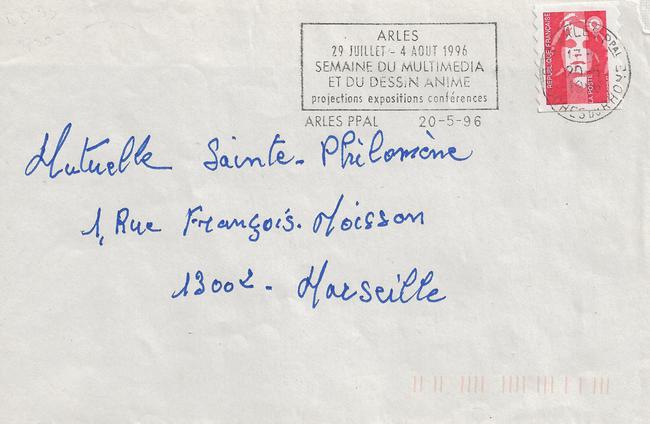 ARLES
29 JUILLET - 4 AOUT 1996
SEMAINE DU MULTIMEDIA
ET DU DESSIN ANIME
projections expositions conférences
ARLES PPAL 20-5-96
REPUBLIQUE FRANÇAISE
LA POSTE
Mutuelle Sainte-Philomène
1, Rue François-Moisson
13002 - Marseille